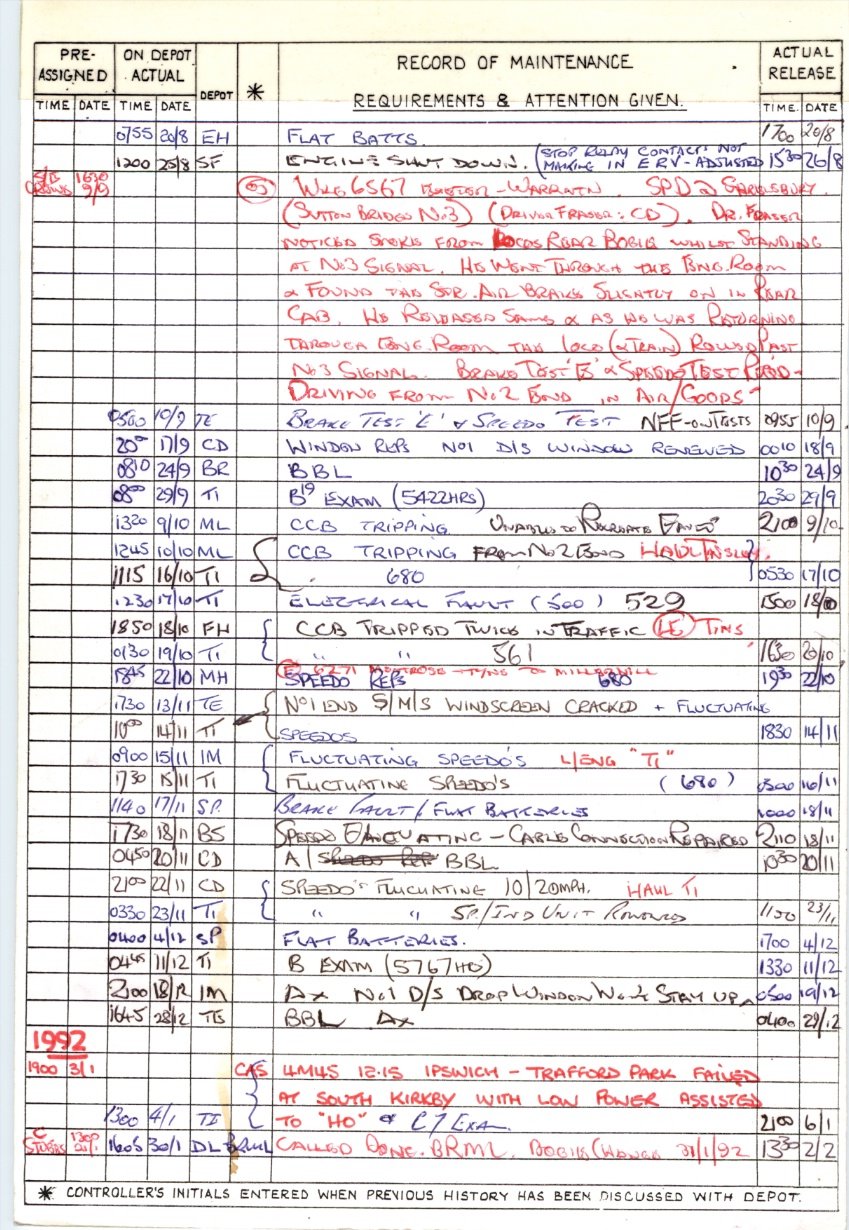 PRE-ASSIGNED ON DEPOT ACTUAL DEPOT * RECORD OF MAINTENANCE REQUIREMENTS & ATTENTION GIVEN. ACTUAL RELEASE
TIME DATE TIME DATE TIME. DATE
0755 20/8 EH FLAT BATTS. 1700 20/8
1200 25/8 SF ENGINE SHUT DOWN. (STOP RELAY CONTACTS NOT MAKING IN ERV - ADJUSTED 1530 26/8
S/B 1630 9/9 WKG 6S67 - WARRNTN. SPD @ SAREWSBURY.
(SUTTON BRIDGE No.3) (DRIVER FRASER: CD). DR. FRASER
NOTICED SMOKE FROM LOCOS REAR BOGIE WHILST STANDING
AT No3 SIGNAL. HE WENT THROUGH THE ENG. ROOM
& FOUND THE STR. AIR BRAKE SLIGHTLY ON IN REAR
CAB. HE RELEASED SAME & AS HE WAS RETURNING
THROUGH ENG. ROOM THE LOCO (& TRAIN) ROLLED PAST
No3 SIGNAL. BRAKE TEST 'E' & SPEEDO TEST REQD -
DRIVING FROM No2 END IN AIR/GOODS -
0500 10/9 TE BRAKE TEST 'E' & SPEEDO TEST NFF - ON TESTS 0955 10/9
20⁰⁰ 17/9 CD WINDOW REPS No1 D/S WINDOW RENEWED 0010 18/9
08¹⁰ 24/9 BR BBL 10³⁰ 24/9
08⁰⁰ 29/9 TI B¹⁹ EXAM (5422HRS) 2030 29/9
1320 9/10 ML CCB TRIPPING UNABLE TO RECREATE FAULT 2100 9/10
1245 10/10 ML CCB TRIPPING FROM No2 END HAUL TINSLEY.
1115 16/10 TI 680 0530 17/10
1230 17/10 TI ELECTRICAL FAULT (500) 529 1500 18/10
1850 18/10 FH CCB TRIPPED TWICE IN TRAFFIC LE TINS
0130 19/10 TI " " 561 1630 20/10
E 6271 MONTROSE - TYNE TO MILLERHILL
1845 22/10 MH SPEEDO REPS 680 19³⁰ 22/10
1730 13/11 TE No1 END S/M/S WINDSCREEN CRACKED + FLUCTUATING
10⁰⁰ 14/11 TI SPEEDOS 1830 14/11
0900 15/11 IM FLUCTUATING SPEEDO'S L/ENG "TI"
1730 15/11 TI FLUCTUATING SPEEDO'S (680) 0300 16/11
1140 17/11 SP. BRAKE FAULT / FLAT BATTERIES 1000 18/11
1730 18/11 BS SPEEDO - CABLE CONNECTION REPAIRED 2110 18/11
0450 20/11 CD A/ SPEEDO REP BBL 10³⁰ 20/11
2100 22/11 CD SPEEDO'S FLUCUATING 10/20MPH. HAUL TI
0330 23/11 TI " " SP/IND UNIT RENEWED 1150 23/11
0400 4/12 SP FLAT BATTERIES. 1700 4/12
0445 11/12 TI B EXAM (5767 HO) 1330 11/12
2100 18/12 IM AX No1 D/S DROP WINDOW WON'T STAY UP 0500 19/12
1645 28/12 TE BBL AX 0400 29/12
1992
1900 3/1 CAS 4M45 12.15 IPSWICH - TRAFFORD PARK FAILED
AT SOUTH KIRKBY WITH LOW POWER ASSISTED
1300 4/1 TI TO "HO" & C7 EXAM. 2100 6/1
C STUBBS 1300 1605 30/1 DL BRML CALLED DONC. BRML. BOGIE CHANGE 31/1/92 1330 2/2
* CONTROLLER'S INITIALS ENTERED WHEN PREVIOUS HISTORY HAS BEEN DISCUSSED WITH DEPOT.